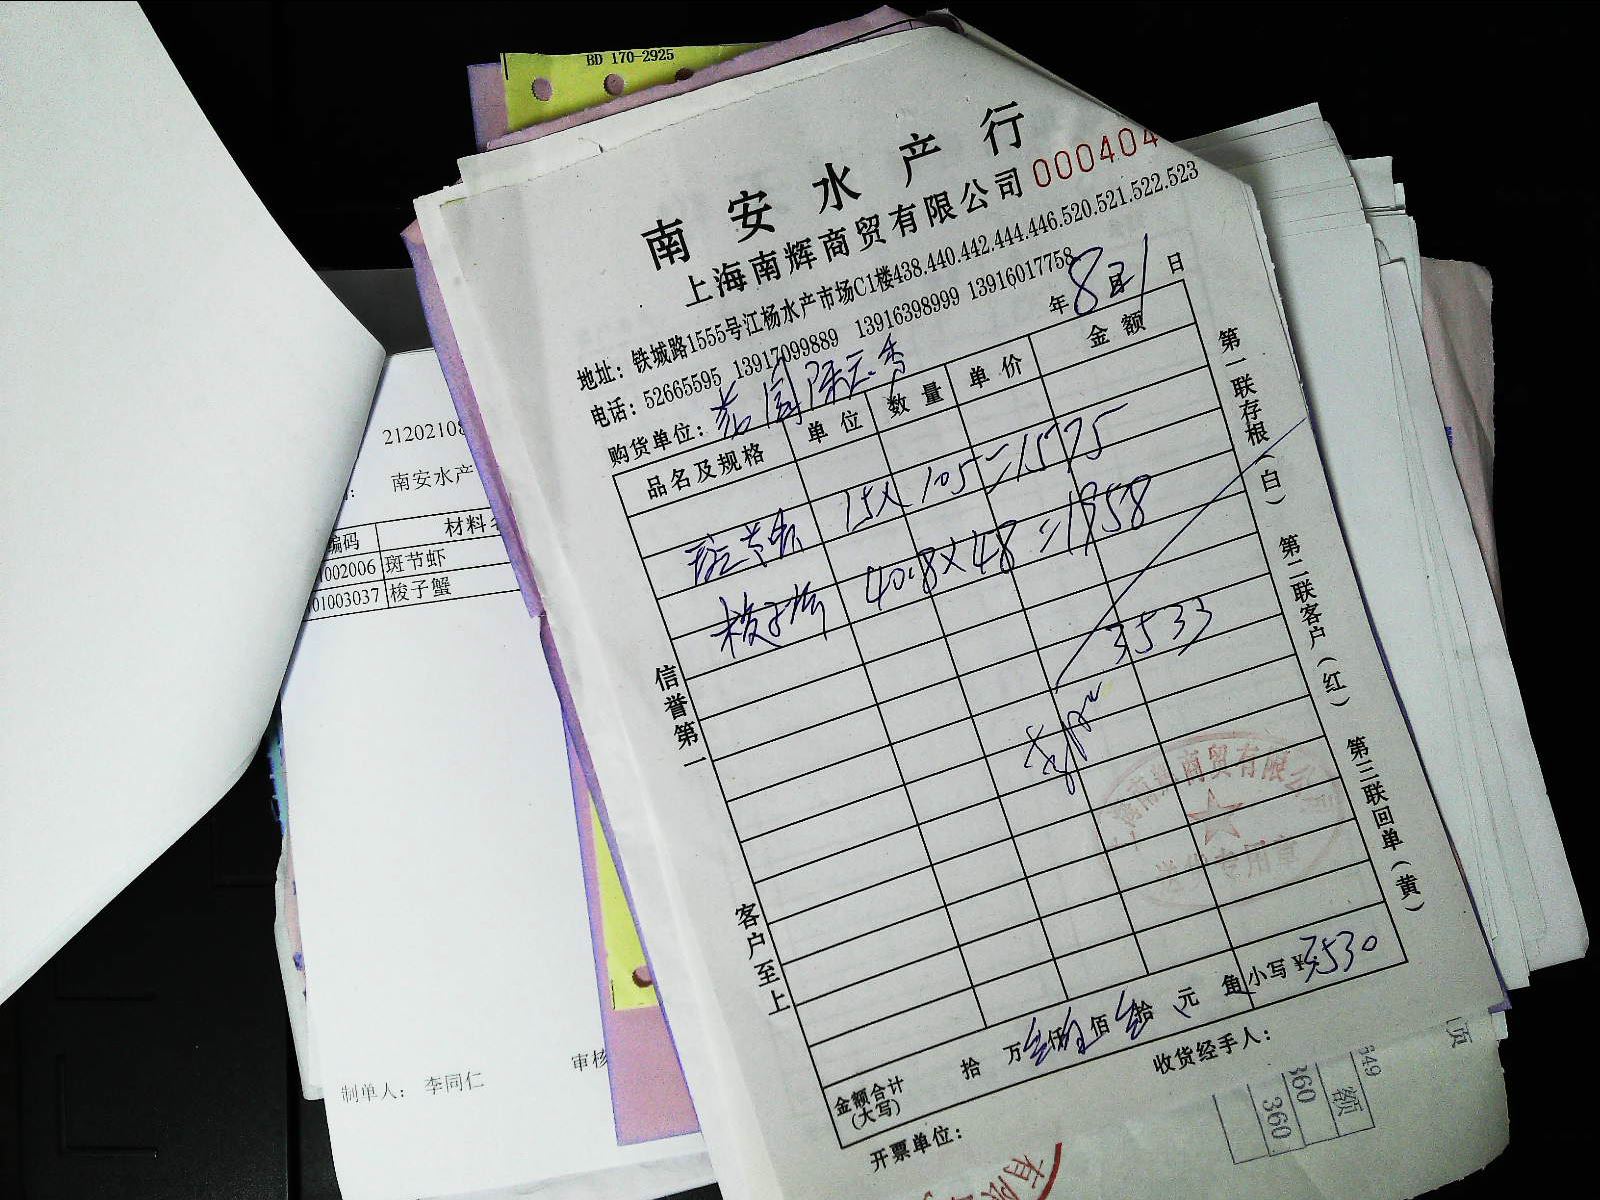 BD 170-2925
南安水产行
上海南辉商贸有限公司 000404
地址：铁城路1555号江杨水产市场C1楼438.440.442.444.446.520.521.522.523
电话：52665595 13917099889 13916398999 13916017758
购货单位： 年8月1日
品名及规格 单位 数量 单价 金额
斑节虾 15X 105=1575
梭子蟹 40.8X48=1958
3533
信誉第一
客户至上
第一联存根（白） 第二联客户（红） 第三联回单（黄）
南辉商贸有限公司
送货专用章
金额合计(大写) 拾 万 叁仟 伍佰 叁拾 元 角 小写￥3530
开票单位： 收货经手人：
21202108
南安水产
编码 材料
002006 斑节虾
01003037 梭子蟹
制单人： 李同仁 审核
有限
页
649
额
360
360